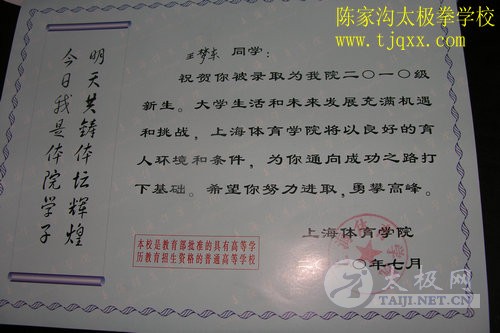 陈家沟太极拳学校
www.tjqxx.com
明天共铸体坛辉煌
今日我是体院学子
王梦东 同学：
祝贺你被录取为我院二〇一〇级
新生。大学生活和未来发展充满机遇
和挑战，上海体育学院将以良好的育
人环境和条件，为你通向成功之路打
下基础。希望你努力进取，勇攀高峰。
上海体育学院
〇年七月
本校是教育部批准的具有高等学
历教育招生资格的普通高等学校
太极网
TAIJI.NET.CN